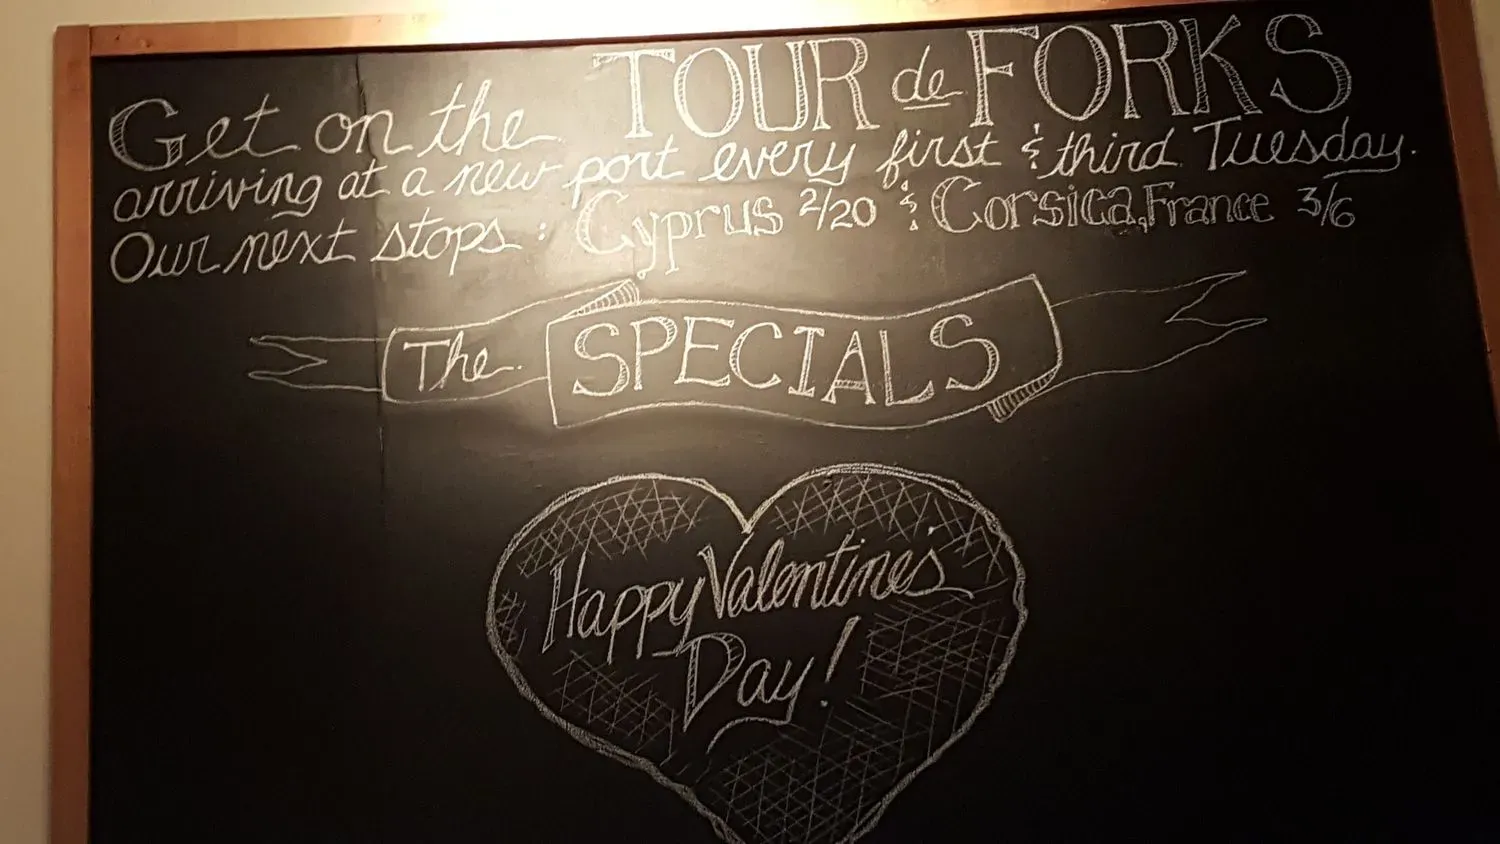 Get on the TOUR de FORKS
arriving at a new port every first & third Tuesday.
Our next stops: Cyprus 2/20 & Corsica, France 3/6
The SPECIALS
Happy Valentine's
Day!